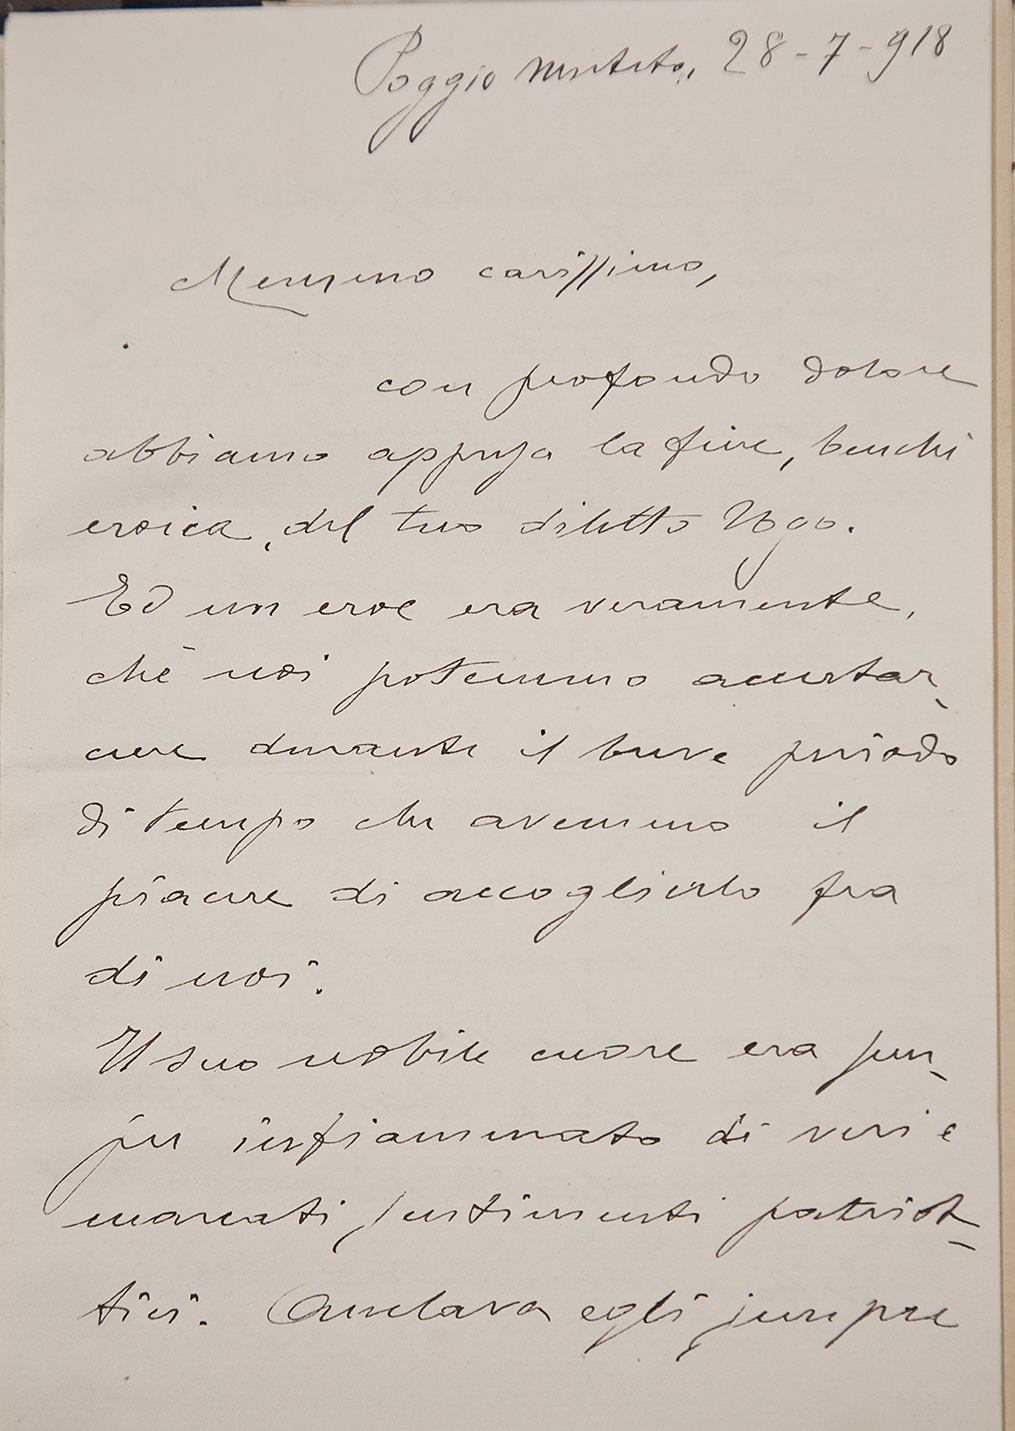 Poggio Mirteto, 28-7-918
Memmo carissimo,
con profondo dolore
abbiamo appresa la fine, benchè
eroica, del tuo diletto Ugo.
Ed un eroe era veramente,
chè noi potemmo accertar-
cene durante il breve periodo
di tempo che avemmo il
piacere di accoglierlo fra
di noi.
Il suo nobile cuore era sem-
pre infiammato di veri e
marcati sentimenti patriot-
tici. Anelava egli sempre